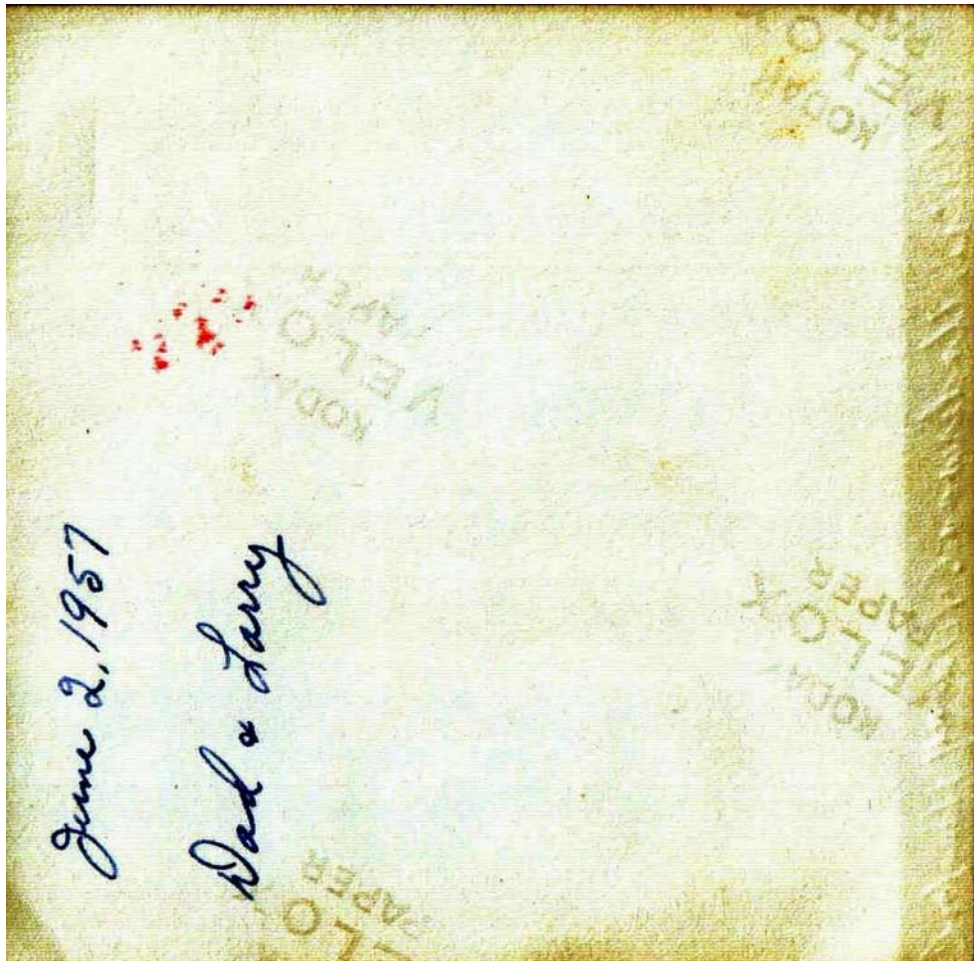 June 2, 1957
Dad & Larry
KODAK
VELOX
PAPER
KODAK
VELO
PAPER
KODAK
VELOX
PAPER
ELO
PAPER